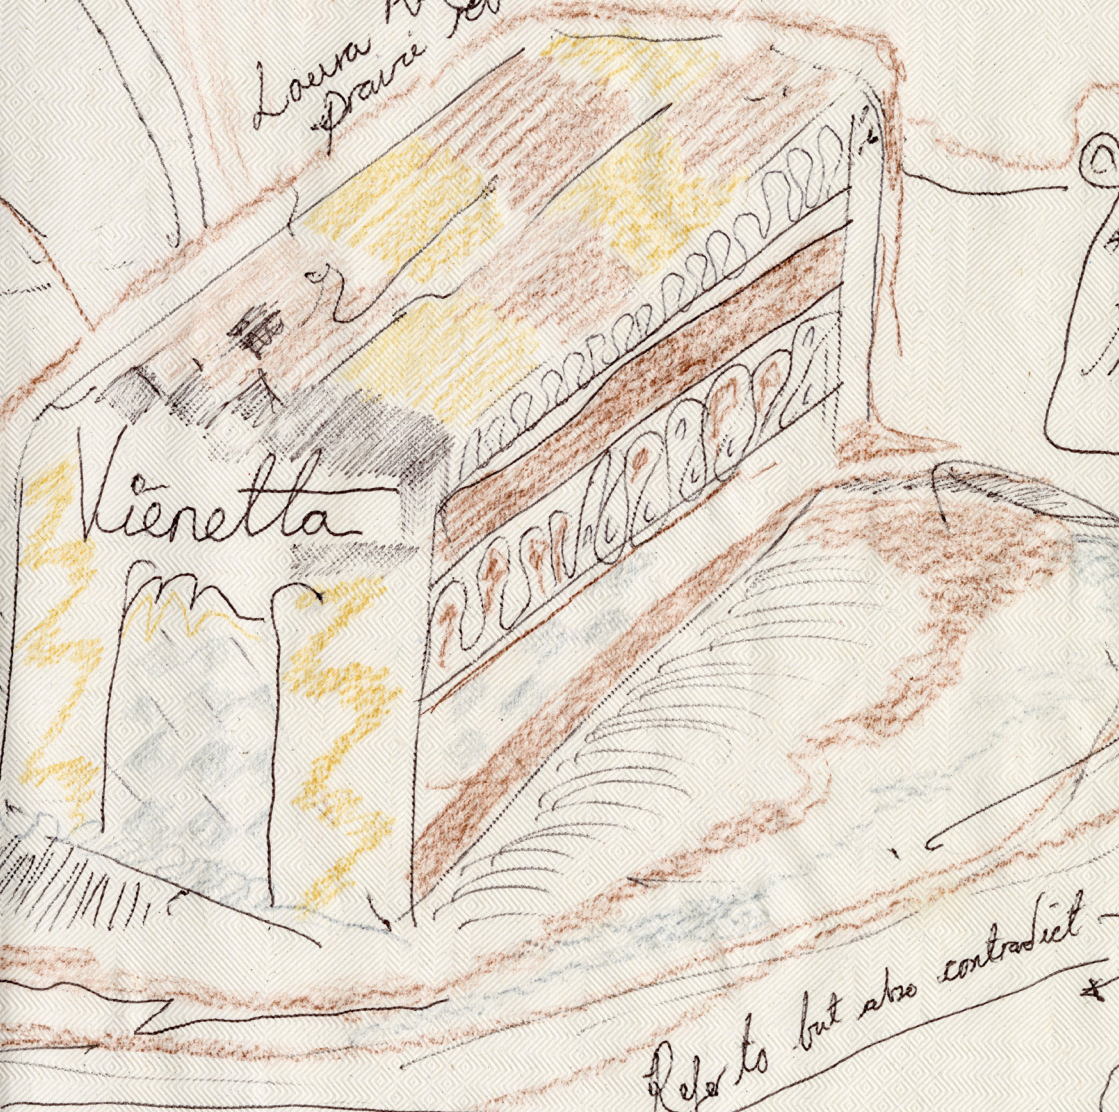 Laura
prairie
Vienetta
Refer to but also contradict -
*